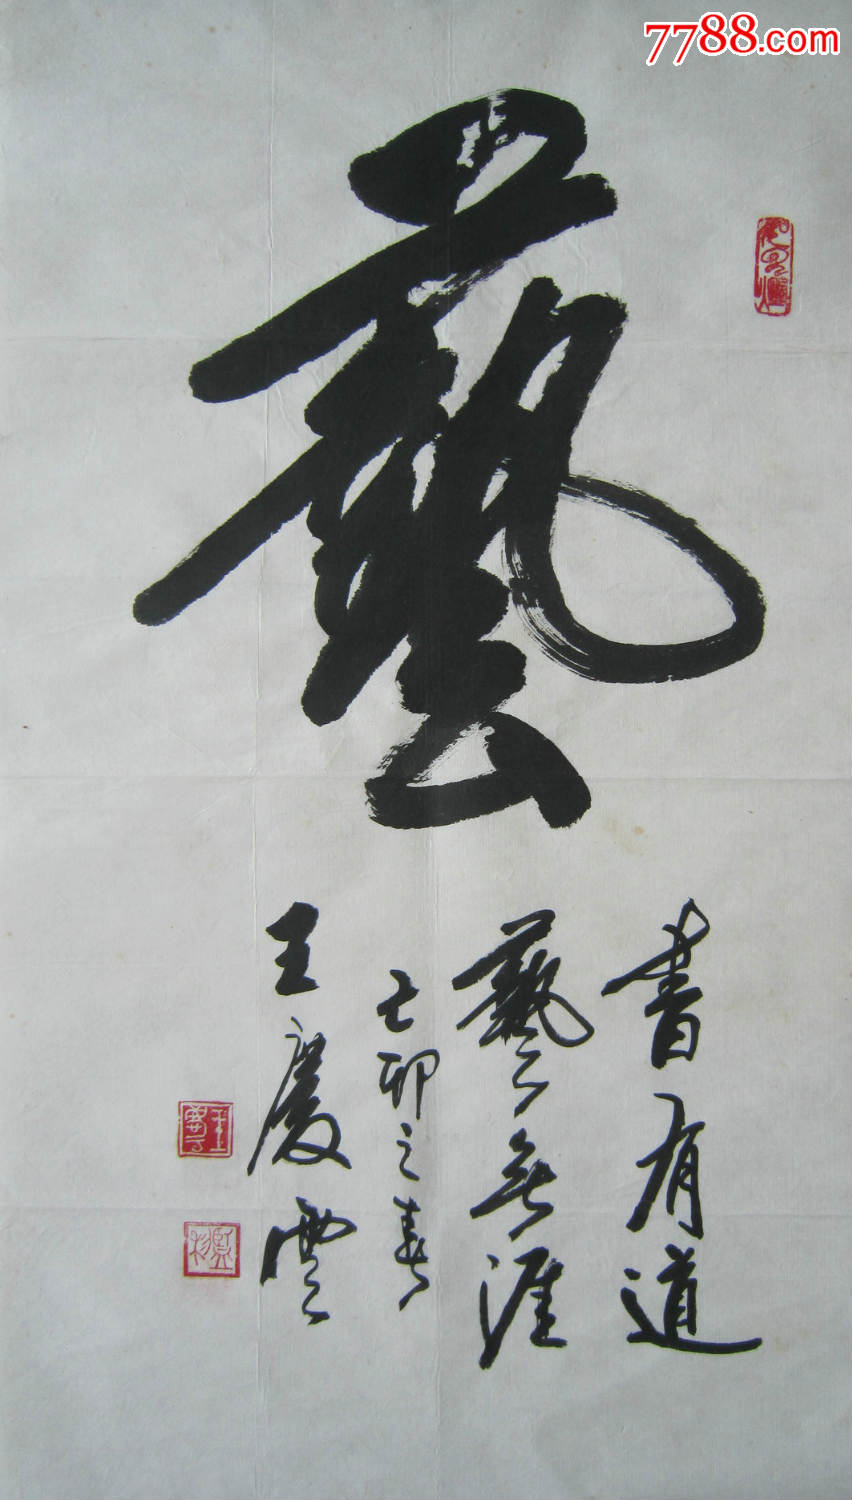 7788.com
藝
書有道
藝無涯
己卯之春
王慶雲